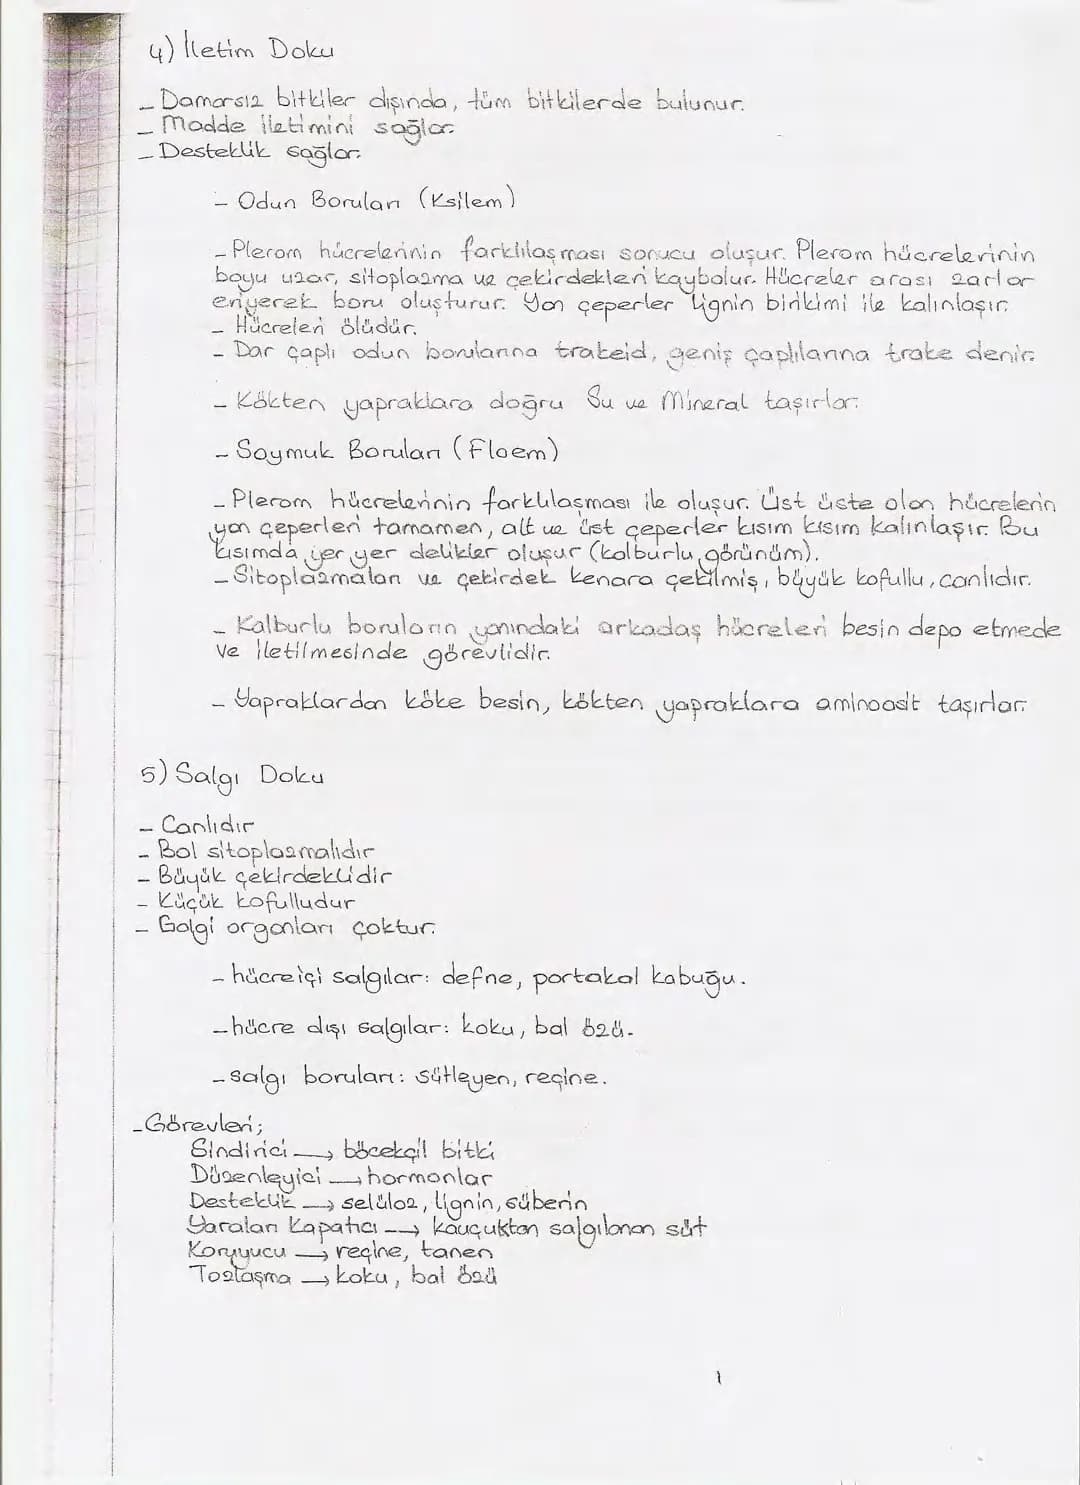 4) İletim Doku
- Damarsız bitkiler dışında, tüm bitkilerde bulunur.
- Madde iletimini sağlar.
- Desteklik sağlar.
- Odun Boruları (Ksilem)
- Plerom hücrelerinin farklılaşması sonucu oluşur. Plerom hücrelerinin
boyu uzar, sitoplazma ve çekirdekleri kaybolur. Hücreler arası zarlar
eriyerek boru oluşturur. Yan çeperler lignin birikimi ile kalınlaşır.
- Hücreleri ölüdür.
- Dar çaplı odun borularına trakeid, geniş çaplılarına trake denir.
- Kökten yapraklara doğru Su ve Mineral taşırlar.
- Soymuk Boruları (Floem)
- Plerom hücrelerinin farklılaşması ile oluşur. Üst üste olan hücrelerin
yan çeperleri tamamen, alt ve üst çeperler kısım kısım kalınlaşır. Bu
kısımda yer yer delikler oluşur (kalburlu görünüm).
- Sitoplazmaları ve çekirdek kenara çekilmiş, büyük kofullu, canlıdır.
- Kalburlu boruların yanındaki arkadaş hücreleri besin depo etmede
ve iletilmesinde görevlidir.
- Yapraklardan köke besin, kökten yapraklara aminoasit taşırlar.
5) Salgı Doku
- Canlıdır
- Bol sitoplazmalıdır
- Büyük çekirdeklidir
- Küçük kofulludur
- Golgi organları çoktur.
- hücreiçi salgılar: defne, portakal kabuğu.
- hücre dışı salgılar: koku, bal özü.
- salgı boruları: sütleyen, reçine.
- Görevleri;
Sindirici → böcekçil bitki
Düzenleyici → hormonlar
Desteklik → selüloz, lignin, süberin
Yaraları Kapatıcı → kauçuktan salgılanan süt
Koruyucu → reçine, tanen
Tozlaşma → koku, bal özü
1